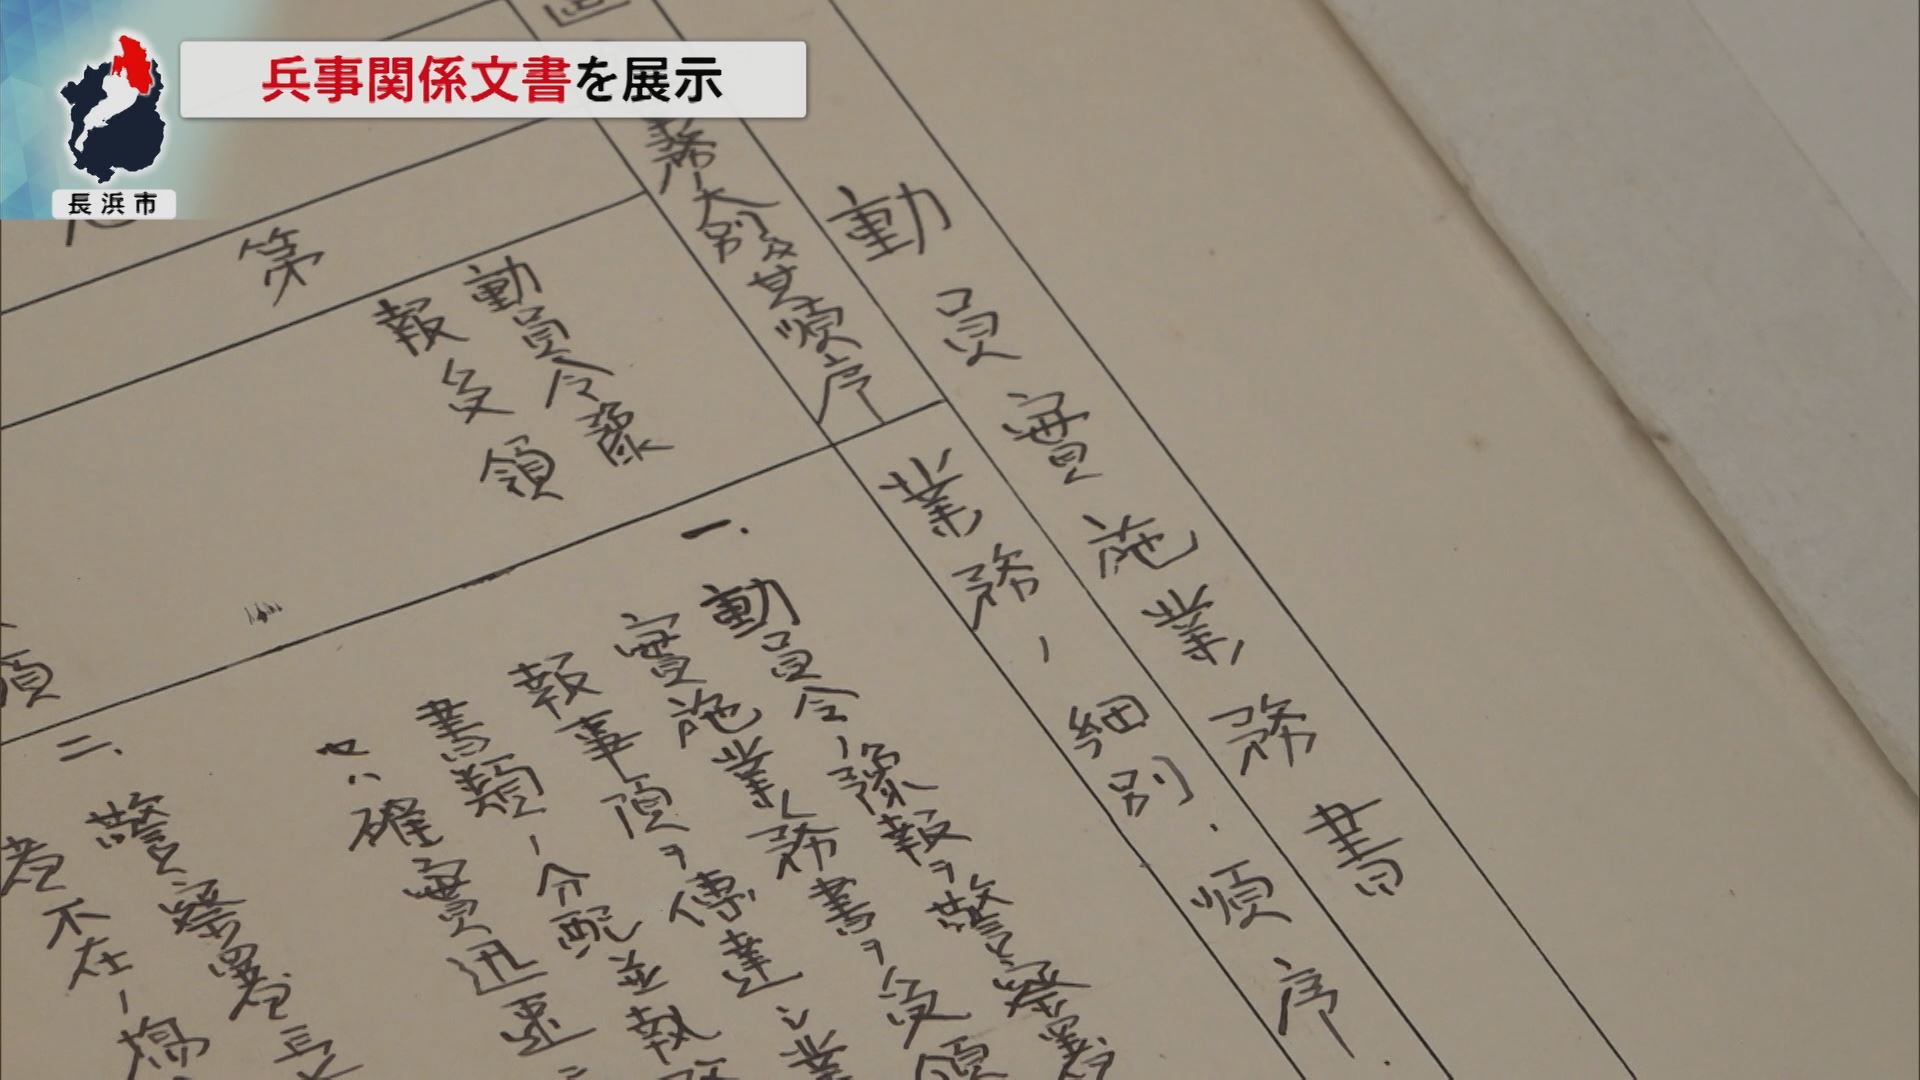 兵事関係文書を展示
長浜市
動員實施業務書
務ノ大別及其順序
業務ノ細別順序
第
動員令豫
報受領
一、動員令ノ豫報ヲ警察署
實施業務書ヲ受領
報事項ヲ傳達シ業
書類ノ分配並執務
ヒ確實迅速ニ
二、警察署長
者不在ノ場
項